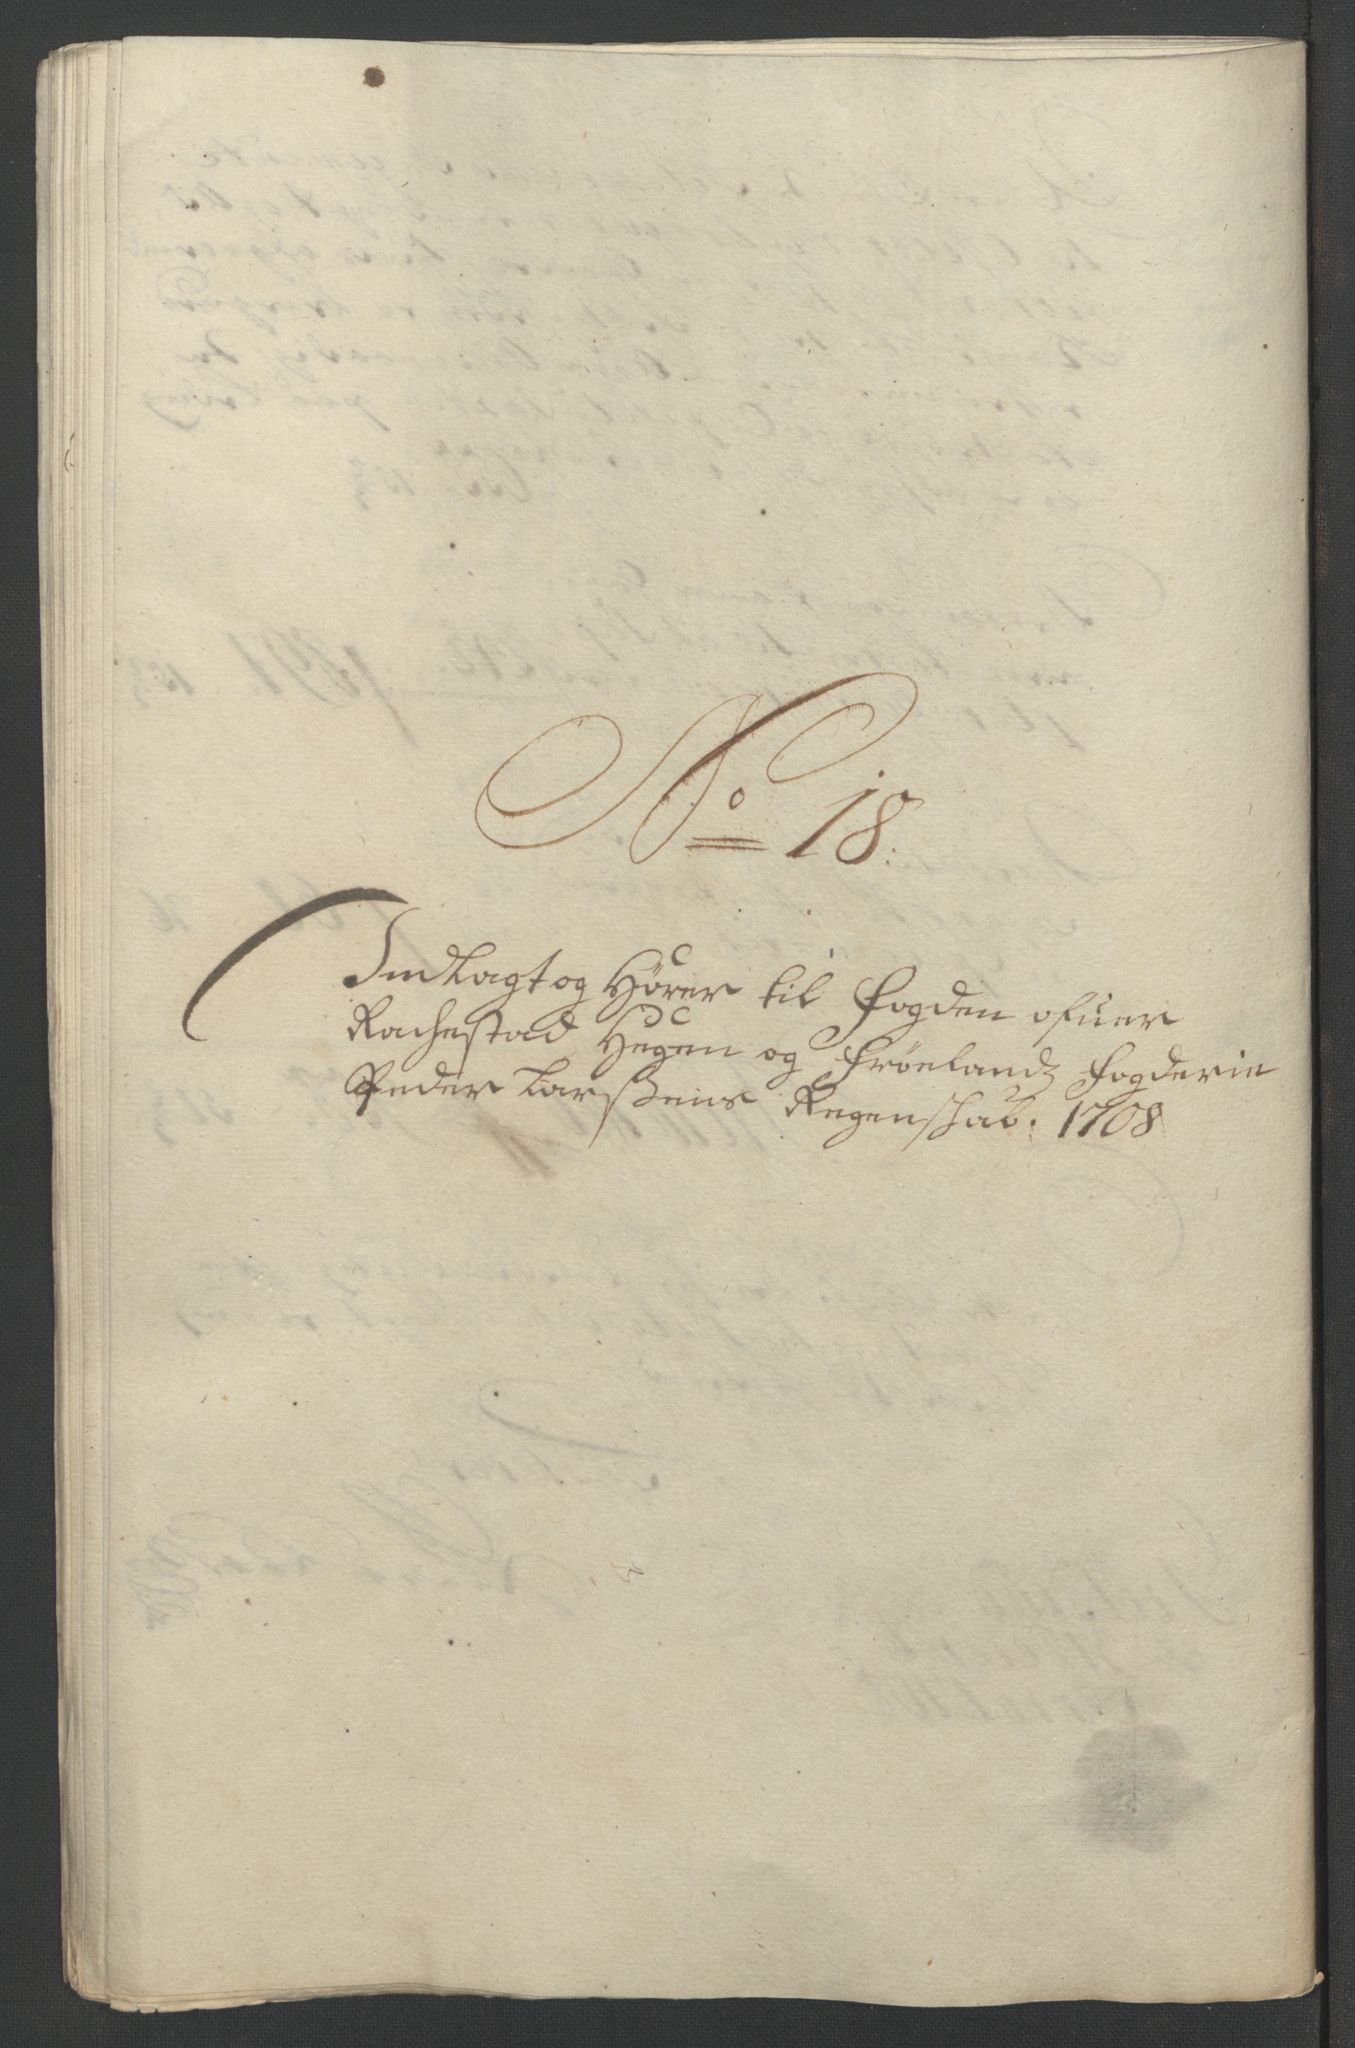 No 18.
Indlagt og Hörer til fogden ofuer
Rachestad Hegen og fröelandz fogderie
Peder Larßens Regenschab. 1708